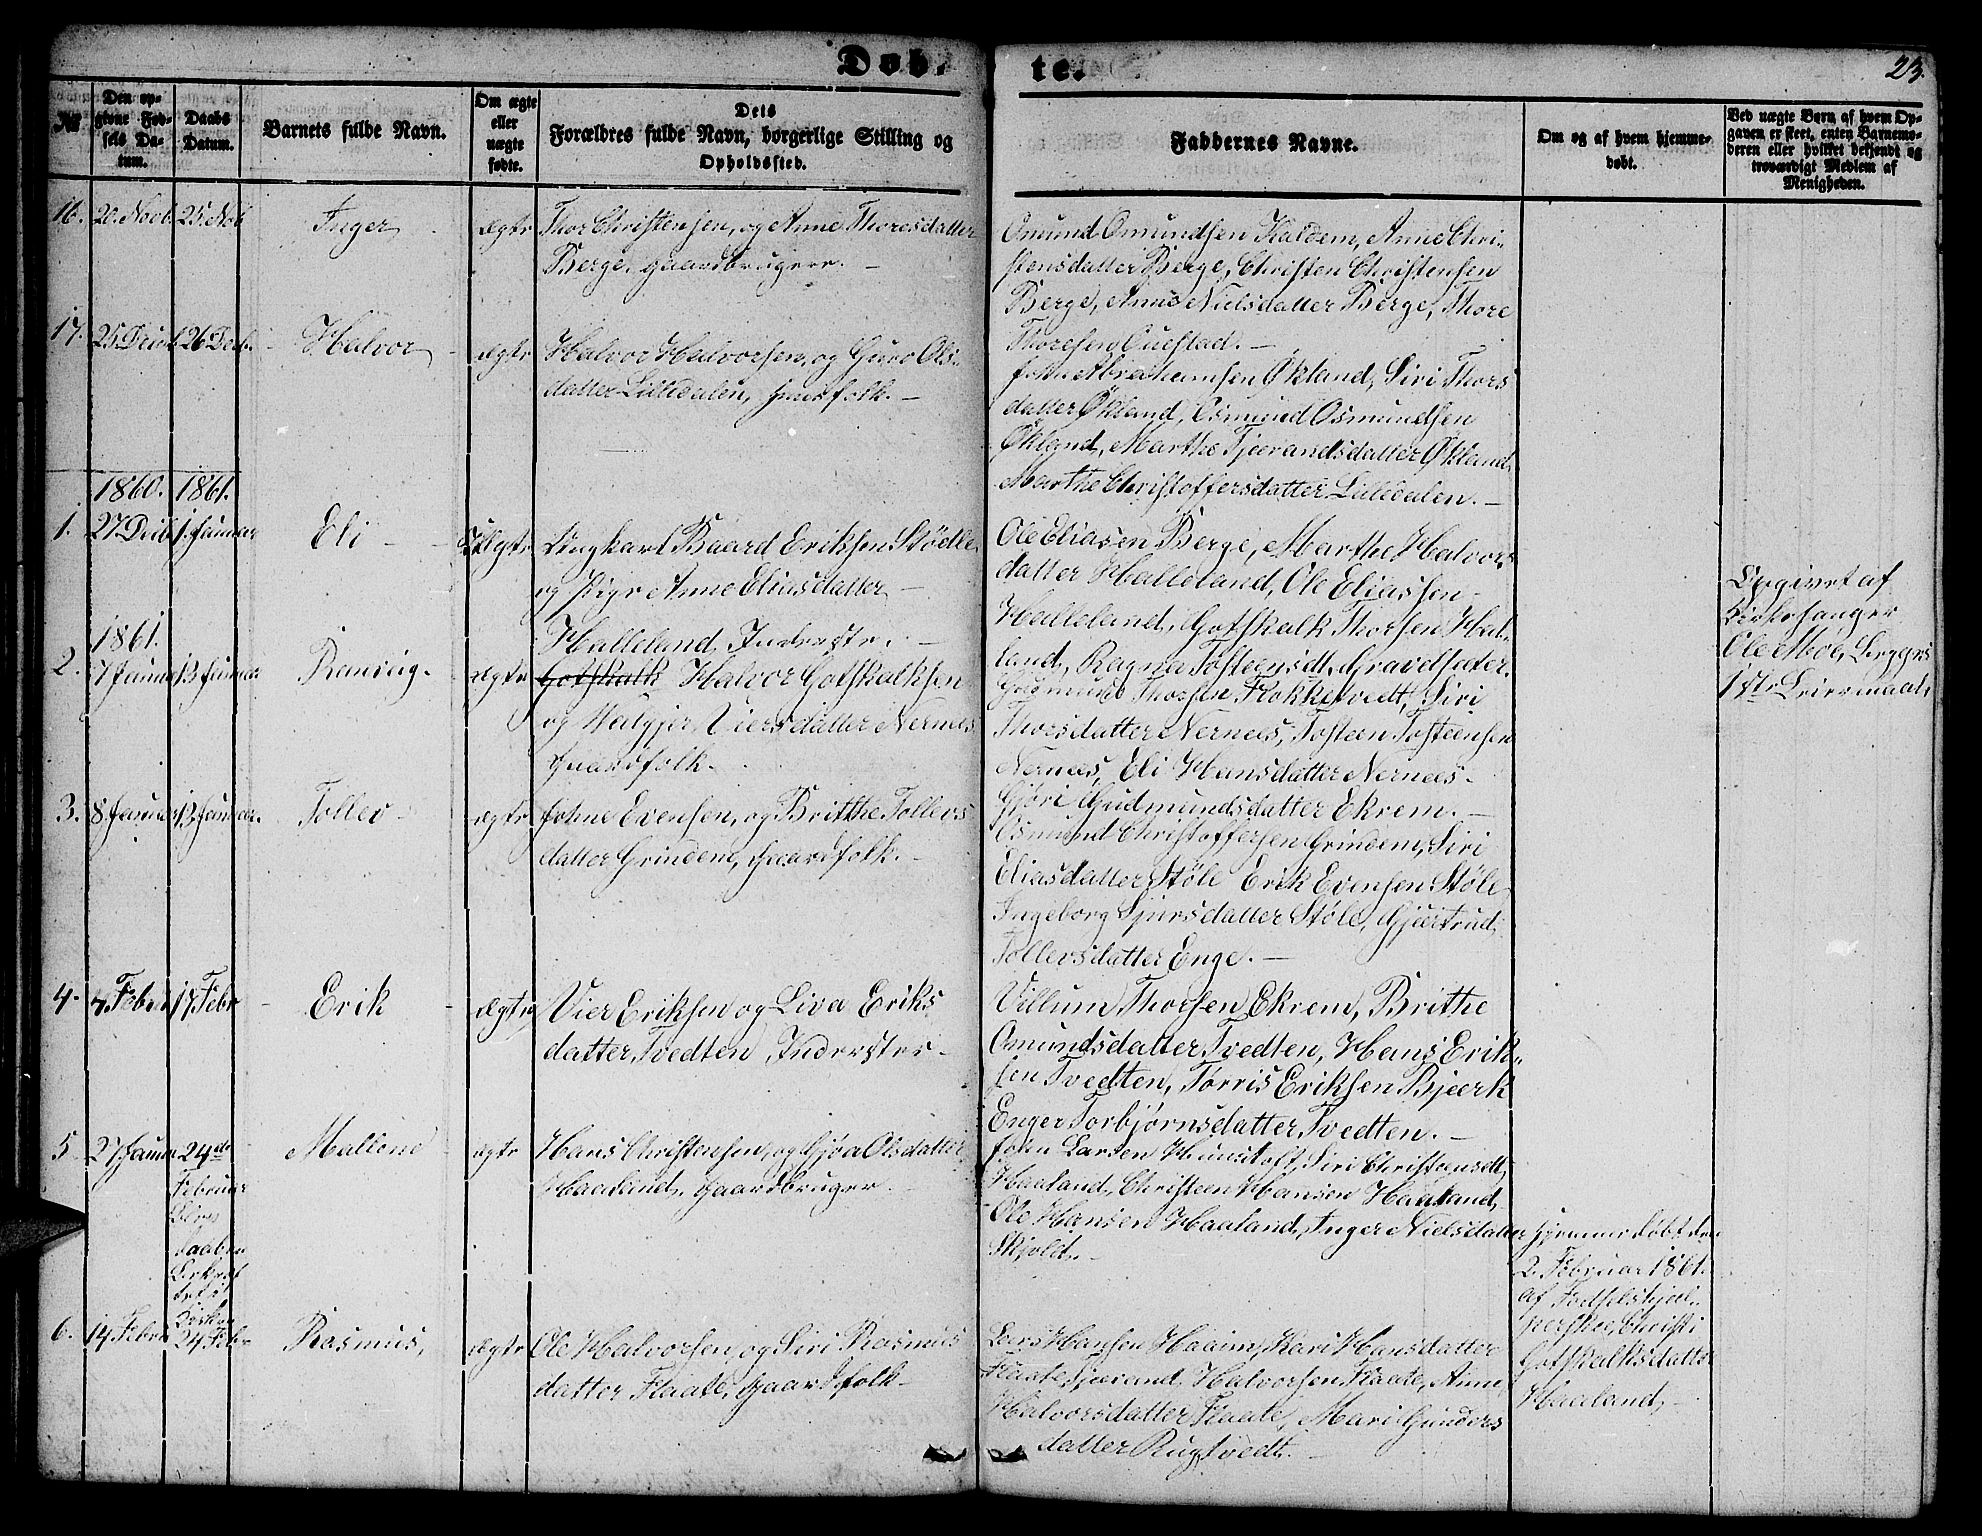 Døb.
te.
23.
№
Den opgivne Fødsels Datum.
Daabs Datum.
Barnets fulde Navn.
Om ægte eller uægte fødte.
Dets Forældres fulde Navn, borgerlige Stilling og Opholdssted.
Faddernes Navne.
Om og af hvem hjemmedøbt.
Ved uægte Børn af hvem Opgaven er skeet, enten Barnemoderen eller hvilket bekjendt og troværdigt Medlem af Menigheden.
16.
20. Novb.
25. Nov
Inger
ægte
Thor Christensen, og Anne Thoresdatter
Berge, gaardbrugere. —
Omund Omundsen Kaldem, Anne Chri-
stensdatter Berge, Christen Christensen
Berge, Anne Nielsdatter Berge, Thore
Thoresen
17.
26 Decb.
Halvor
ægte
Halvor Halvorsen, og Guro Ols-
datter Lilledalen, huusfolk. —
John Abrahamsen Økland, Siri Thors
datter Økland, Osmund Osmundsen
Økland, Marthe Tjerandsdatter Økland,
Marthe Christoffersdatter Lilledalen. —
1860.
1861.
1.
27 Decb
1. Januar
Eli
Uægte
Ungkarl Baard Eriksen Støelle
og Pige Anne Eliasdatter
Halleland, Inderste. —
Ole Eliasen Berge, Marthe Halvors-
datter Halleland, Ole Eliassen
Halleland, Gotskalk Thorsen Hal-
land, Ragna Tosteensdt. Gravelsæter.
Opgivet af
Kirkesanger
Ole Moe, Begges
1ste Leiermaal.
1861.
2.
7 Januar
13 Januar
Ranveig.
ægte
Gotskalk Halvor Gotskalksen
og Valgjer Viersdatter Nernæs
Gaardfolk.
Gudmund Thorsen Flokketvedt, Siri
Thorsdatter Nernæs, Tosteen Tosteensen
Nernæs, Eli Hansdatter Nernæs.
Gjøri Gudmundsdatter Ekrem. —
3.
8 Januar
13 Januar.
Tollev
ægte
Johne Evensen, og Britthe Tollevs
datter Grindem, Gaardfolk. —
Osmund Christoffersen Grindem, Siri
Eliasdatter Støle Erik Evensen Støle,
Ingeborg Sjursdatter Støle, Gjertrud
Tollevsdatter Enge. —
4.
17 Febr
Erik
ægte
Vier Eriksen og Liva Eriks
datter Tvedten, Inderster.
Villum Thorsen Ekrem, Brithe
Omundsdatter Tvedten, Hans Erik-
sen Tvedten, Tørris Eriksen Bjerk
Enger Torbjørnsdatter Tvedten. —
5
27 Januar
24de
Februar
Daaben
Kirken
Maliene
ægte
Hans Christensen, og Gjøa Olsdatter
Haaland, Gaardbruger.
John Larsen Hunstoft, Siri Christensdtt
Haaland, Christeen Hansen Haaland,
Ole Hansen Haaland, Inger Nielsdatter
Skjold. —
Hjemmedøbt den
2. Februar 1861.
af Fødselshjæl-
perske, Christi
Gotskalksdatter
Haaland,
6.
14 Febr
24 Febr
Rasmus,
ægte
Ole Halvorsen, og Siri Rasmus
datter Flaate, Gaardfolk
Lars Hansen Haaim, Kari Hansdatter
Flaate, Tjerand Halvorsen Flaate, Anne
Halvorsdatter Flaate, Mari Gunders
datter Rugtvedt.